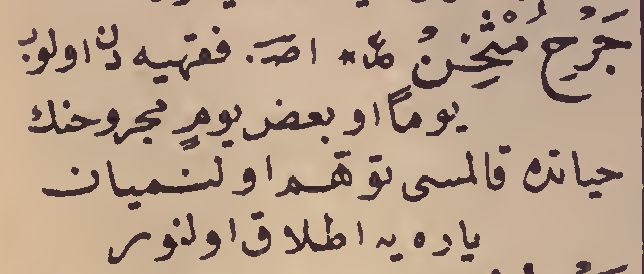 جَرْحِ مُثْخِنُ ع * اصـ. فقهيه دن اولوب
يوماً او بعض يومٍ مجروحنك
حياتده قالمسى توهّم اولنميان
ياره يه اطلاق اولنور